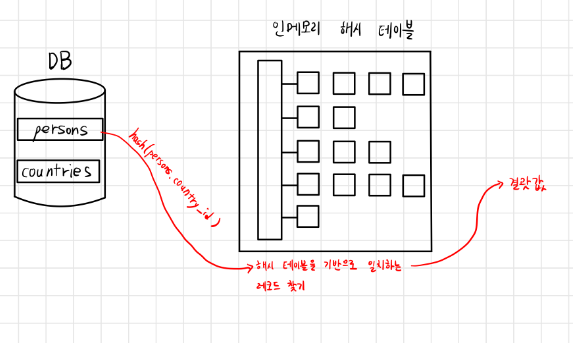 인메모리 해시 테이블
DB
persons
countries
hash(persons.country_id)
해시 테이블을 기반으로 일치하는
레코드 찾기
결괏값